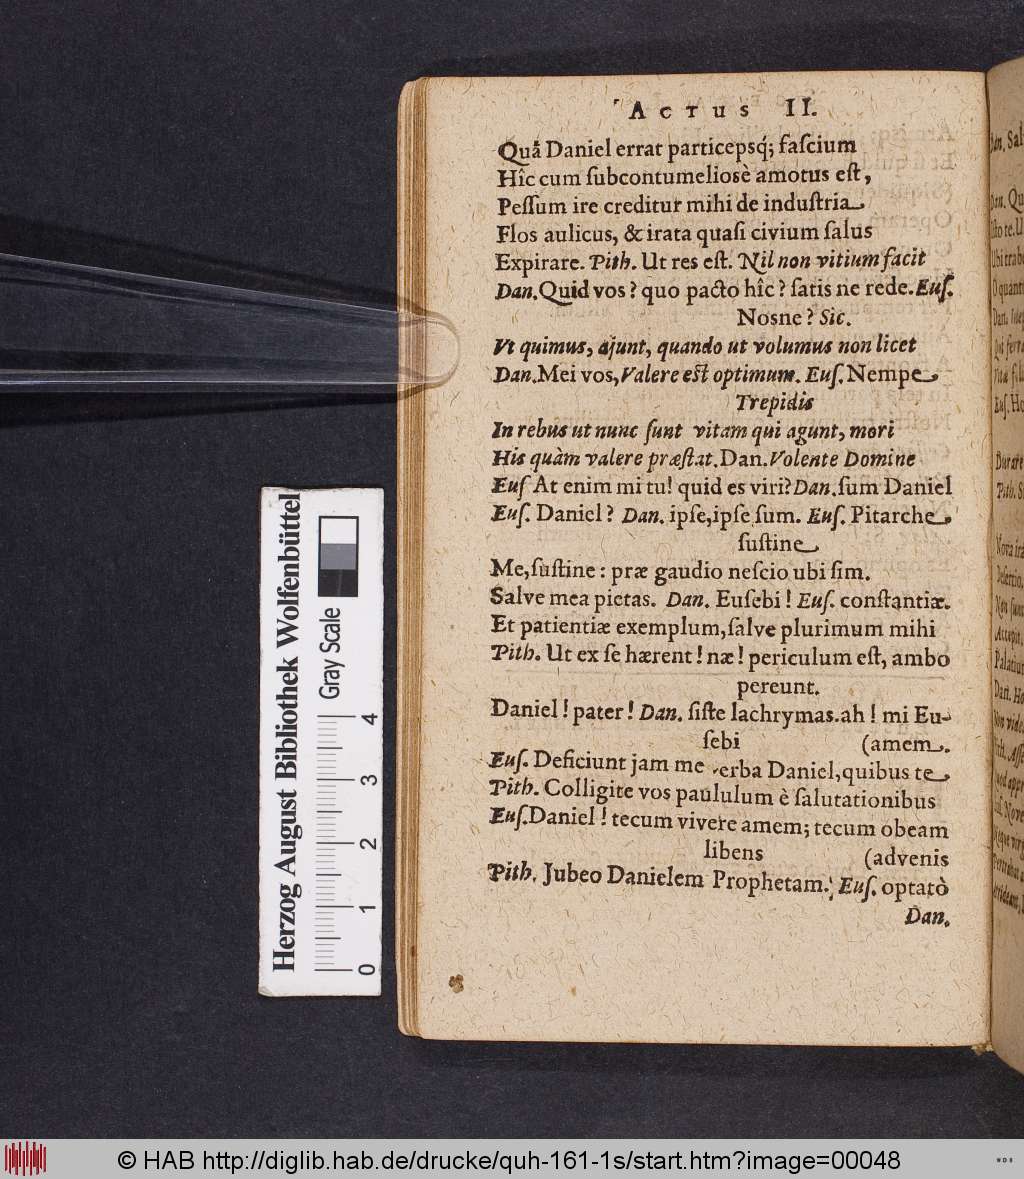 ACTUS II.
Quã Daniel errat particepsq́; faſcium
Hîc cum ſubcontumelioſè amotus eſt,
Peſſum ire creditur mihi de induſtria
Flos aulicus, & irata quaſi civium ſalus
Expirare. Pith. Ut res eſt. Nil non vitium facit
Dan. Quid vos? quo pacto hîc? ſatis ne rede. Euſ.
Nosne? Sic.
Vt quimus, ajunt, quando ut volumus non licet
Dan. Mei vos, Valere eſt optimum. Euſ. Nempe
Trepidis
In rebus ut nunc ſunt vitam qui agunt, mori
His quàm valere præſtat. Dan. Volente Domine
Euſ At enim mi tu! quid es viri? Dan. ſum Daniel
Euſ. Daniel? Dan. ipſe, ipſe ſum. Euſ. Pitarche
ſuſtine
Me, ſuſtine: præ gaudio neſcio ubi ſim.
Salve mea pietas. Dan. Euſebi! Euſ. conſtantiæ.
Et patientiæ exemplum, ſalve plurimum mihi
Pith. Ut ex ſe hærent! næ! periculum eſt, ambo
pereunt.
Daniel! pater! Dan. ſiſte lachrymas. ah! mi Eu-
ſebi (amem.
Euſ. Deficiunt jam me verba Daniel, quibus te
Pith. Colligite vos paululum è ſalutationibus
Euſ. Daniel! tecum vivere amem; tecum obeam
libens (advenis
Pith. Jubeo Danielem Prophetam. Euſ. optatò
Dan.
Herzog August Bibliothek Wolfenbüttel
Gray Scale
0 1 2 3 4
© HAB http://diglib.hab.de/drucke/quh-161-1s/start.htm?image=00048